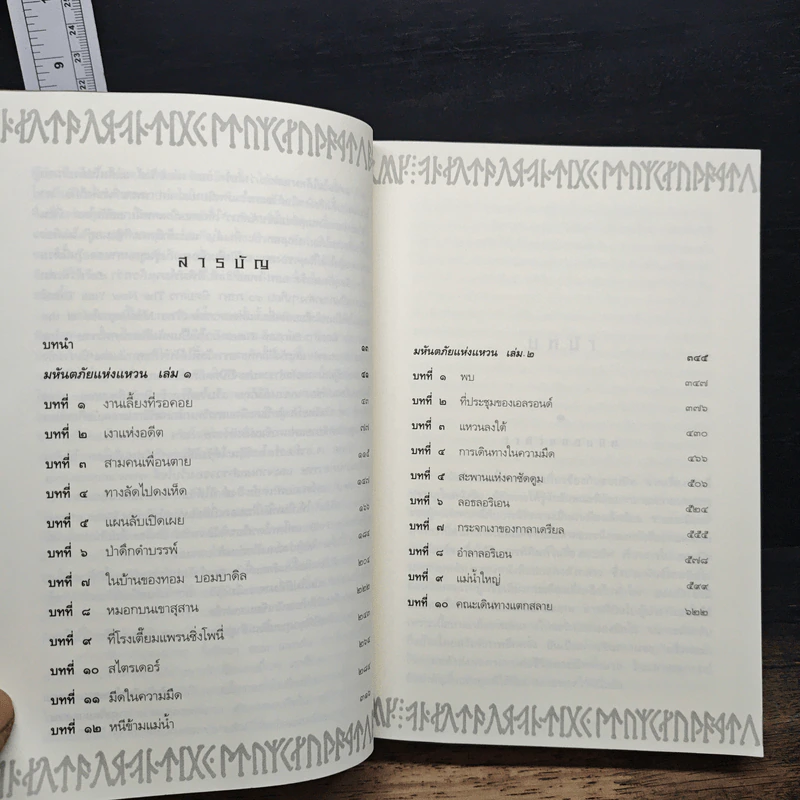 9
25
24
23
22
สารบัญ
บทนำ ๑๓
มหันตภัยแห่งแหวน เล่ม ๑
บทที่ ๑ งานเลี้ยงที่รอคอย
บทที่ ๒ เงาแห่งอดีต ๗๗
บทที่ ๓ สามคนเพื่อนตาย ๑๑๕
บทที่ ๔ ทางลัดไปดงเห็ด ๑๔๗
บทที่ ๕ แผนลับเปิดเผย ๑๖๖
บทที่ ๖ ป่าดึกดำบรรพ์ ๑๘๔
บทที่ ๗ ในบ้านของทอม บอมบาดิล ๒๐๔
บทที่ ๘ หมอกบนเขาสุสาน ๒๒๒
บทที่ ๙ ที่โรงเตี๊ยมแพรนซิ่งโพนี่
บทที่ ๑๐ สไตรเดอร์
บทที่ ๑๑ มีดในความมืด
บทที่ ๑๒ หนีข้ามแม่น้ำ
มหันตภัยแห่งแหวน เล่ม ๒ ๓๔๕
บทที่ ๑ พบ ๓๔๗
บทที่ ๒ ที่ประชุมของเอลรอนด์ ๓๗๖
บทที่ ๓ แหวนลงใต้ ๔๓๐
บทที่ ๔ การเดินทางในความมืด ๔๖๖
บทที่ ๕ สะพานแห่งคาซัดดูม ๕๐๖
บทที่ ๖ ลอธลอริเอน ๕๒๔
บทที่ ๗ กระจกเงาของกาลาเดรียล ๕๕๕
บทที่ ๘ อำลาลอริเอน ๕๗๘
บทที่ ๙ แม่น้ำใหญ่ ๕๙๙
บทที่ ๑๐ คณะเดินทางแตกสลาย ๖๒๒